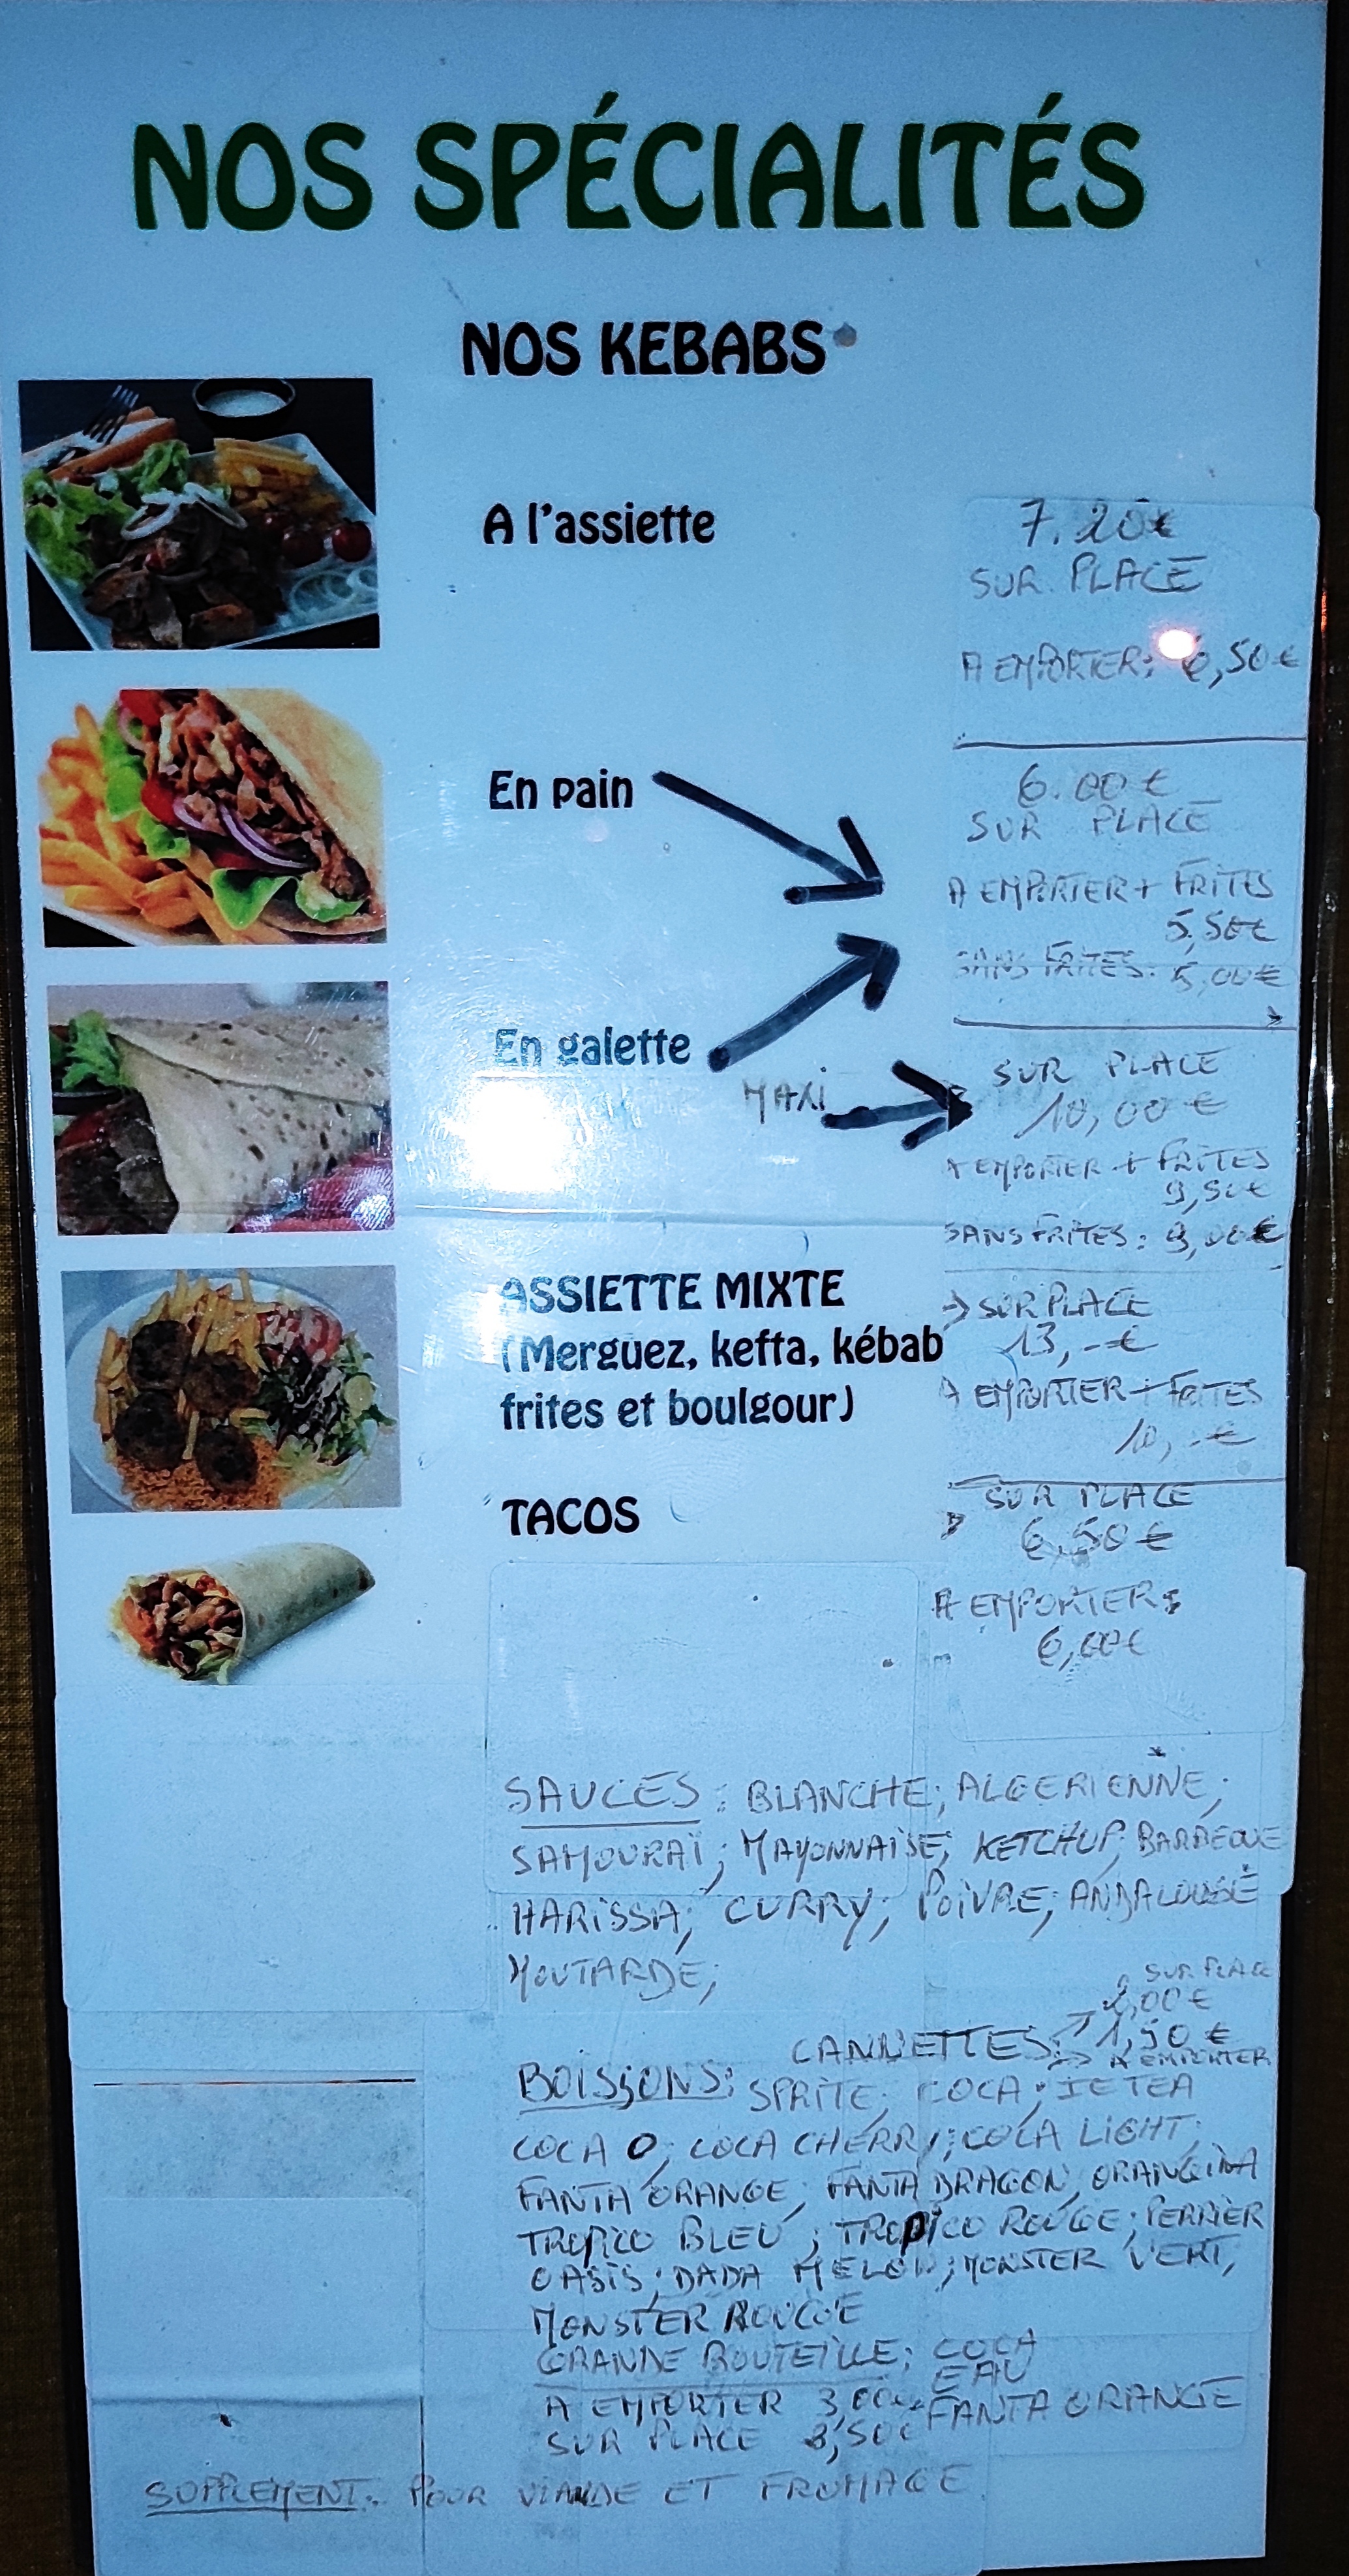 NOS SPÉCIALITÉS
NOS KEBABS
A l'assiette
7.20€
SUR PLACE
A EMPORTER: 6,50€
En pain
6.00€
SUR PLACE
A EMPORTER + FRITES
5,50€
SANS FRITES: 5,00€
En galette
MAXI
SUR PLACE
10,00€
A EMPORTER + FRITES
9,50€
SANS FRITES: 9,00€
ASSIETTE MIXTE
(Merguez, kefta, kébab
frites et boulgour)
→ SUR PLACE
13,-€
A EMPORTER + FRITES
10,-€
TACOS
SUR PLACE
6,50€
A EMPORTER:
6,00€
SAUCES: BLANCHE; ALGERIENNE;
SAMOURAÏ; MAYONNAISE; KETCHUP; BARBEQUE
HARISSA; CURRY; POIVRE; ANDALOUSE
MOUTARDE;
SUR PLACE
2,00€
CANNETTES: 1,50€
A EMPORTER
BOISSONS: SPRITE; COCA; ICETEA
COCA 0; COCA CHERRY; COCA LIGHT;
FANTA ORANGE; FANTA DRAGON; ORANGINA
TROPICO BLEU; TROPICO ROUGE; PERRIER
OASIS; DADA MELON; MONSTER VERT,
MONSTER ROUGE
GRANDE BOUTEILLE: COCA
EAU
A EMPORTER 3,00€ FANTA ORANGE
SUR PLACE 3,50€
SUPPLEMENT: POUR VIANDE ET FROMAGE